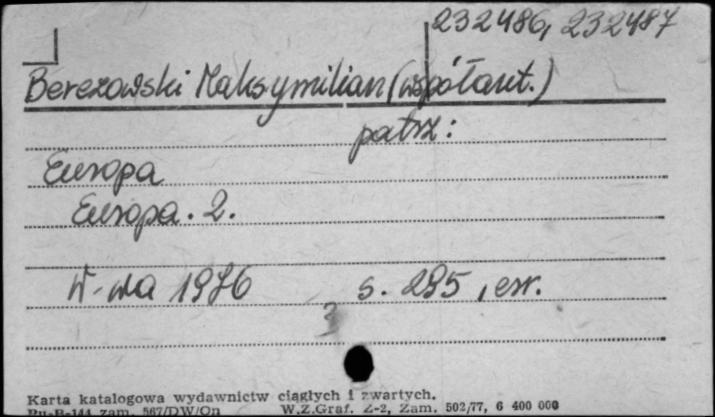 232486, 232487
Berezowski Maksymilian (współaut.)
patrz:
Europa
Europa. 2.
W-wa 1976 s. 295, err.
3
Karta katalogowa wydawnictw ciągłych i zwartych.
Pu-B-144 zam. 567/DW/On W.Z.Graf. Z-2, Zam. 502/77, 6 400 000